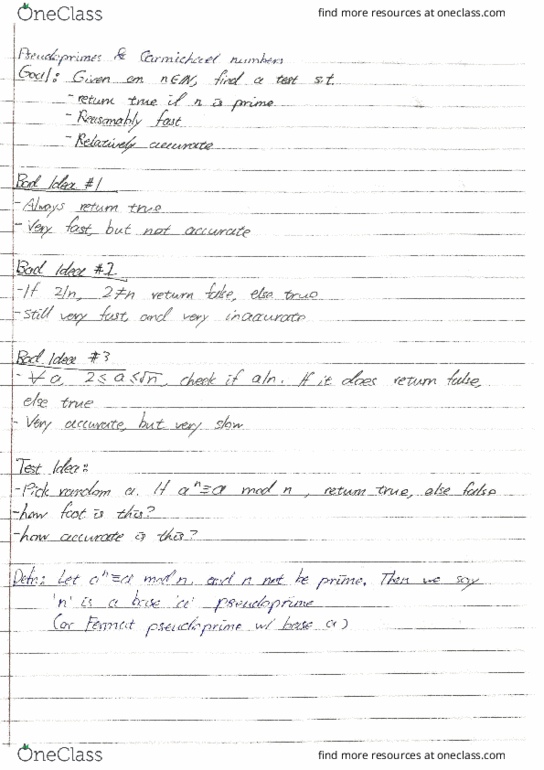 OneClass
find more resources at oneclass.com
Pseudoprimes & Carmichael numbers
Goal: Given an n∈ℕ, find a test s.t.
- return true if n is prime
- Reasonably fast
- Relatively accurate
Bad Idea #1
- Always return true
- Very fast, but not accurate
Bad Idea #2
- If 2|n, 2≠n return false, else true
- Still very fast, and very inaccurate
Bad Idea #3
- ∀ a, 2 ≤ a ≤ √n, check if a|n. If it does return false,
else true
- Very accurate, but very slow
Test Idea:
- Pick random a. If aⁿ ≡ a mod n, return true, else false
- how fast is this?
- how accurate is this?
Defn: Let aⁿ ≡ a mod n, and n not be prime. Then we say
'n' is a base 'a' pseudoprime
(or Fermat pseudoprime w/ base a)
OneClass
find more resources at oneclass.com